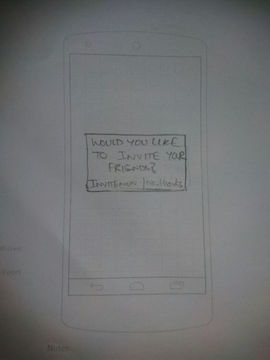 WOULD YOU LIKE
TO INVITE YOUR
FRIENDS?
INVITE NOW | NO, THANKS
Notes